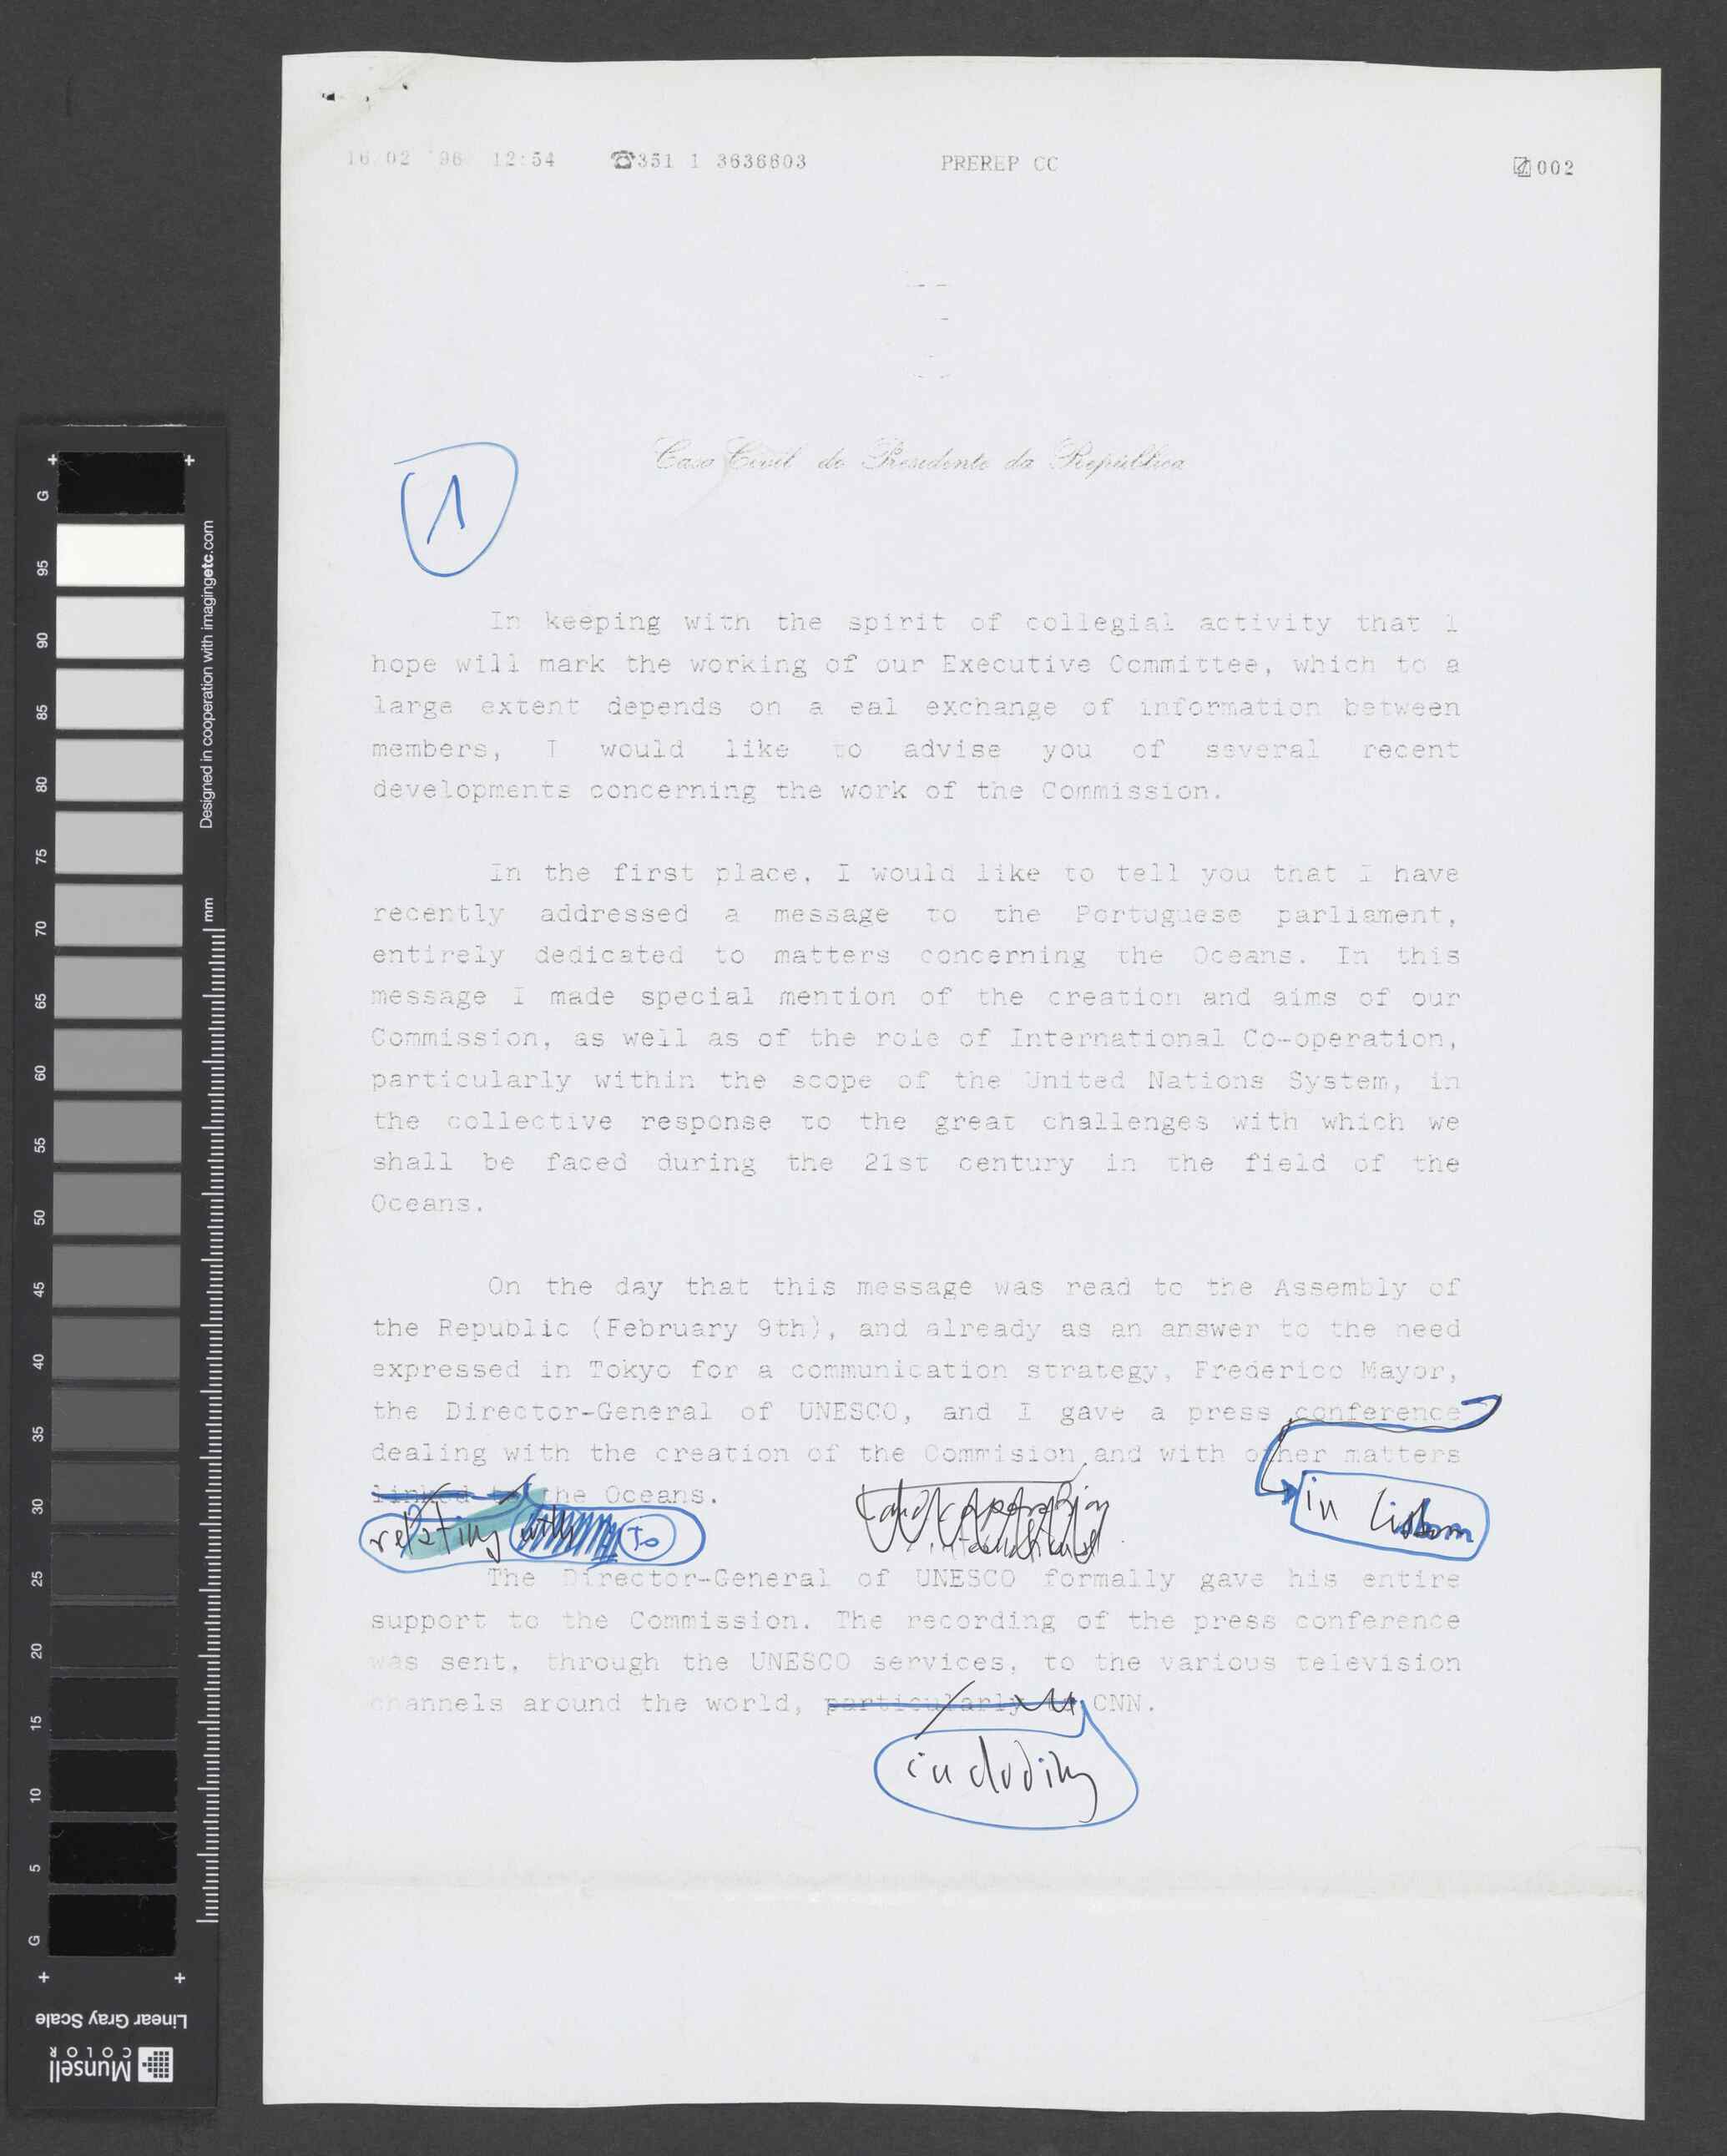 16/02 '96 12:54 ☎351 1 3636603 PREREP CC 002
Casa Civil do Presidente da República
1
In keeping with the spirit of collegial activity that I
hope will mark the working of our Executive Committee, which to a
large extent depends on a eal exchange of information between
members, I would like to advise you of several recent
developments concerning the work of the Commission.
In the first place, I would like to tell you that I have
recently addressed a message to the Portuguese parliament,
entirely dedicated to matters concerning the Oceans. In this
message I made special mention of the creation and aims of our
Commission, as well as of the role of International Co-operation,
particularly within the scope of the United Nations System, in
the collective response to the great challenges with which we
shall be faced during the 21st century in the field of the
Oceans.
On the day that this message was read to the Assembly of
the Republic (February 9th), and already as an answer to the need
expressed in Tokyo for a communication strategy, Frederico Mayor,
the Director-General of UNESCO, and I gave a press conference
dealing with the creation of the Commision and with other matters
linked to the Oceans.
relating with to
in Lisbon
The Director-General of UNESCO formally gave his entire
support to the Commission. The recording of the press conference
was sent, through the UNESCO services, to the various television
channels around the world, particularly to CNN.
including
G
95
90
85
80
75
70
65
60
55
50
45
40
35
30
25
20
15
10
5
G
mm
Designed in cooperation with imagingetc.com
Linear Gray Scale
Munsell
COLOR